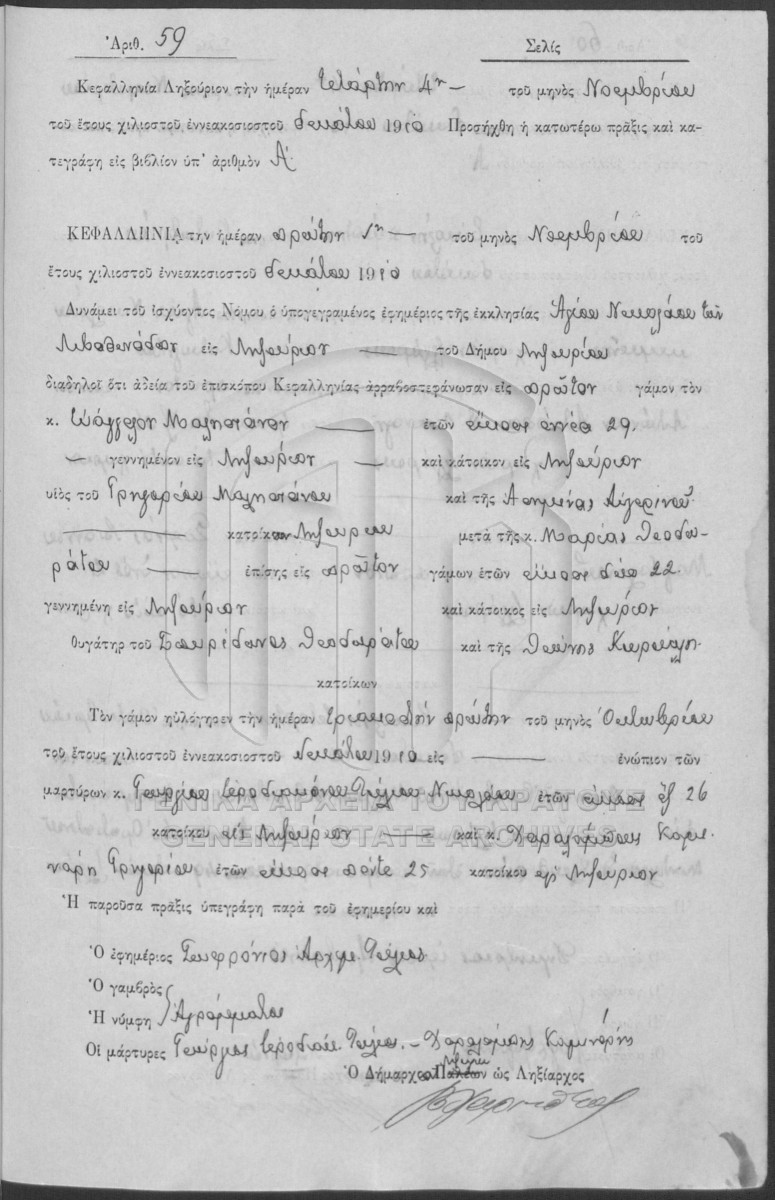 Ἀριθ. 59 Σελίς
Κεφαλληνία Ληξούριον τὴν ἡμέραν τετάρτην 4ην τοῦ μηνὸς Νοεμβρίου
τοῦ ἔτους χιλιοστοῦ ἐννεακοσιοστοῦ δεκάτου 1910 Προσήχθη ἡ κατωτέρω πρᾶξις καὶ κα-
τεγράφη εἰς βιβλίον ὑπ' ἀριθμὸν Α'.
ΚΕΦΑΛΛΗΝΙΑ την ἡμέραν πρώτην 1ην τοῦ μηνὸς Νοεμβρίου τοῦ
ἔτους χιλιοστοῦ ἐννεακοσιοστοῦ δεκάτου 1910
Δυνάμει τοῦ ἰσχύοντος Νόμου ὁ ὑπογεγραμένος ἐφημέριος τῆς ἐκκλησίας Ἁγίου Νικολάου τῶν
εἰς Ληξούριον τοῦ Δήμου Ληξουρίου
διαδηλοῖ ὅτι ἀδεία τοῦ ἐπισκόπου Κεφαλληνίας ἀρραβοστεφάνωσαν εἰς πρῶτον γάμον τὸν
κ. Εὐάγγελον ἐτῶν εἴκοσι ἐννέα 29.
γεννημένον εἰς Ληξούριον καὶ κάτοικον εἰς Ληξούριον
υἱὸς τοῦ Γρηγορίου καὶ τῆς Ἀσημίνας Αὐγερινοῦ
κατοίκων Ληξουρίου μετὰ τῆς κ. Μαρίας Θεοδω-
ράτου ἐπίσης εἰς πρῶτον γάμων ἐτῶν εἴκοσι δύο 22.
γεννημένη εἰς Ληξούριον καὶ κάτοικος εἰς Ληξούριον
θυγάτηρ τοῦ Σπυρίδωνος Θεοδωράτου καὶ τῆς
κατοίκων
Τὸν γάμον ηὐλόγησεν τὴν ἡμέραν τριακοστήν πρώτην τοῦ μηνὸς Ὀκτωβρίου
τοῦ ἔτους χιλιοστοῦ ἐννεακοσιοστοῦ δεκάτου 1910 εἰς ἐνώπιον τῶν
μαρτύρων κ. Γεωργίου ἱεροδιακόνου Νικολάου ἐτῶν εἴκοσι ἕξ 26
κατοίκου εἰς Ληξούριον καὶ κ. Χαραλάμπους Κομι-
νάρη Γρηγορίου ἐτῶν εἴκοσι πέντε 25 κατοίκου εἰς Ληξούριον
Ἡ παροῦσα πρᾶξις ὑπεγράφη παρὰ τοῦ ἐφημερίου καὶ
Ὁ ἐφημέριος Σωφρόνιος Ἀρχιμ.
Ὁ γαμβρὸς
Ἡ νύμφη Ἀγράμματοι
Οἱ μάρτυρες Γεώργιος ἱεροδιάκ. Χαραλάμπης Κομινάρης
Ὁ Δήμαρχος Παλέων ὡς Ληξίαρχος
ΓΕΝΙΚΑ ΑΡΧΕΙΑ ΤΟΥ ΚΡΑΤΟΥΣ
GENERAL STATE ARCHIVES